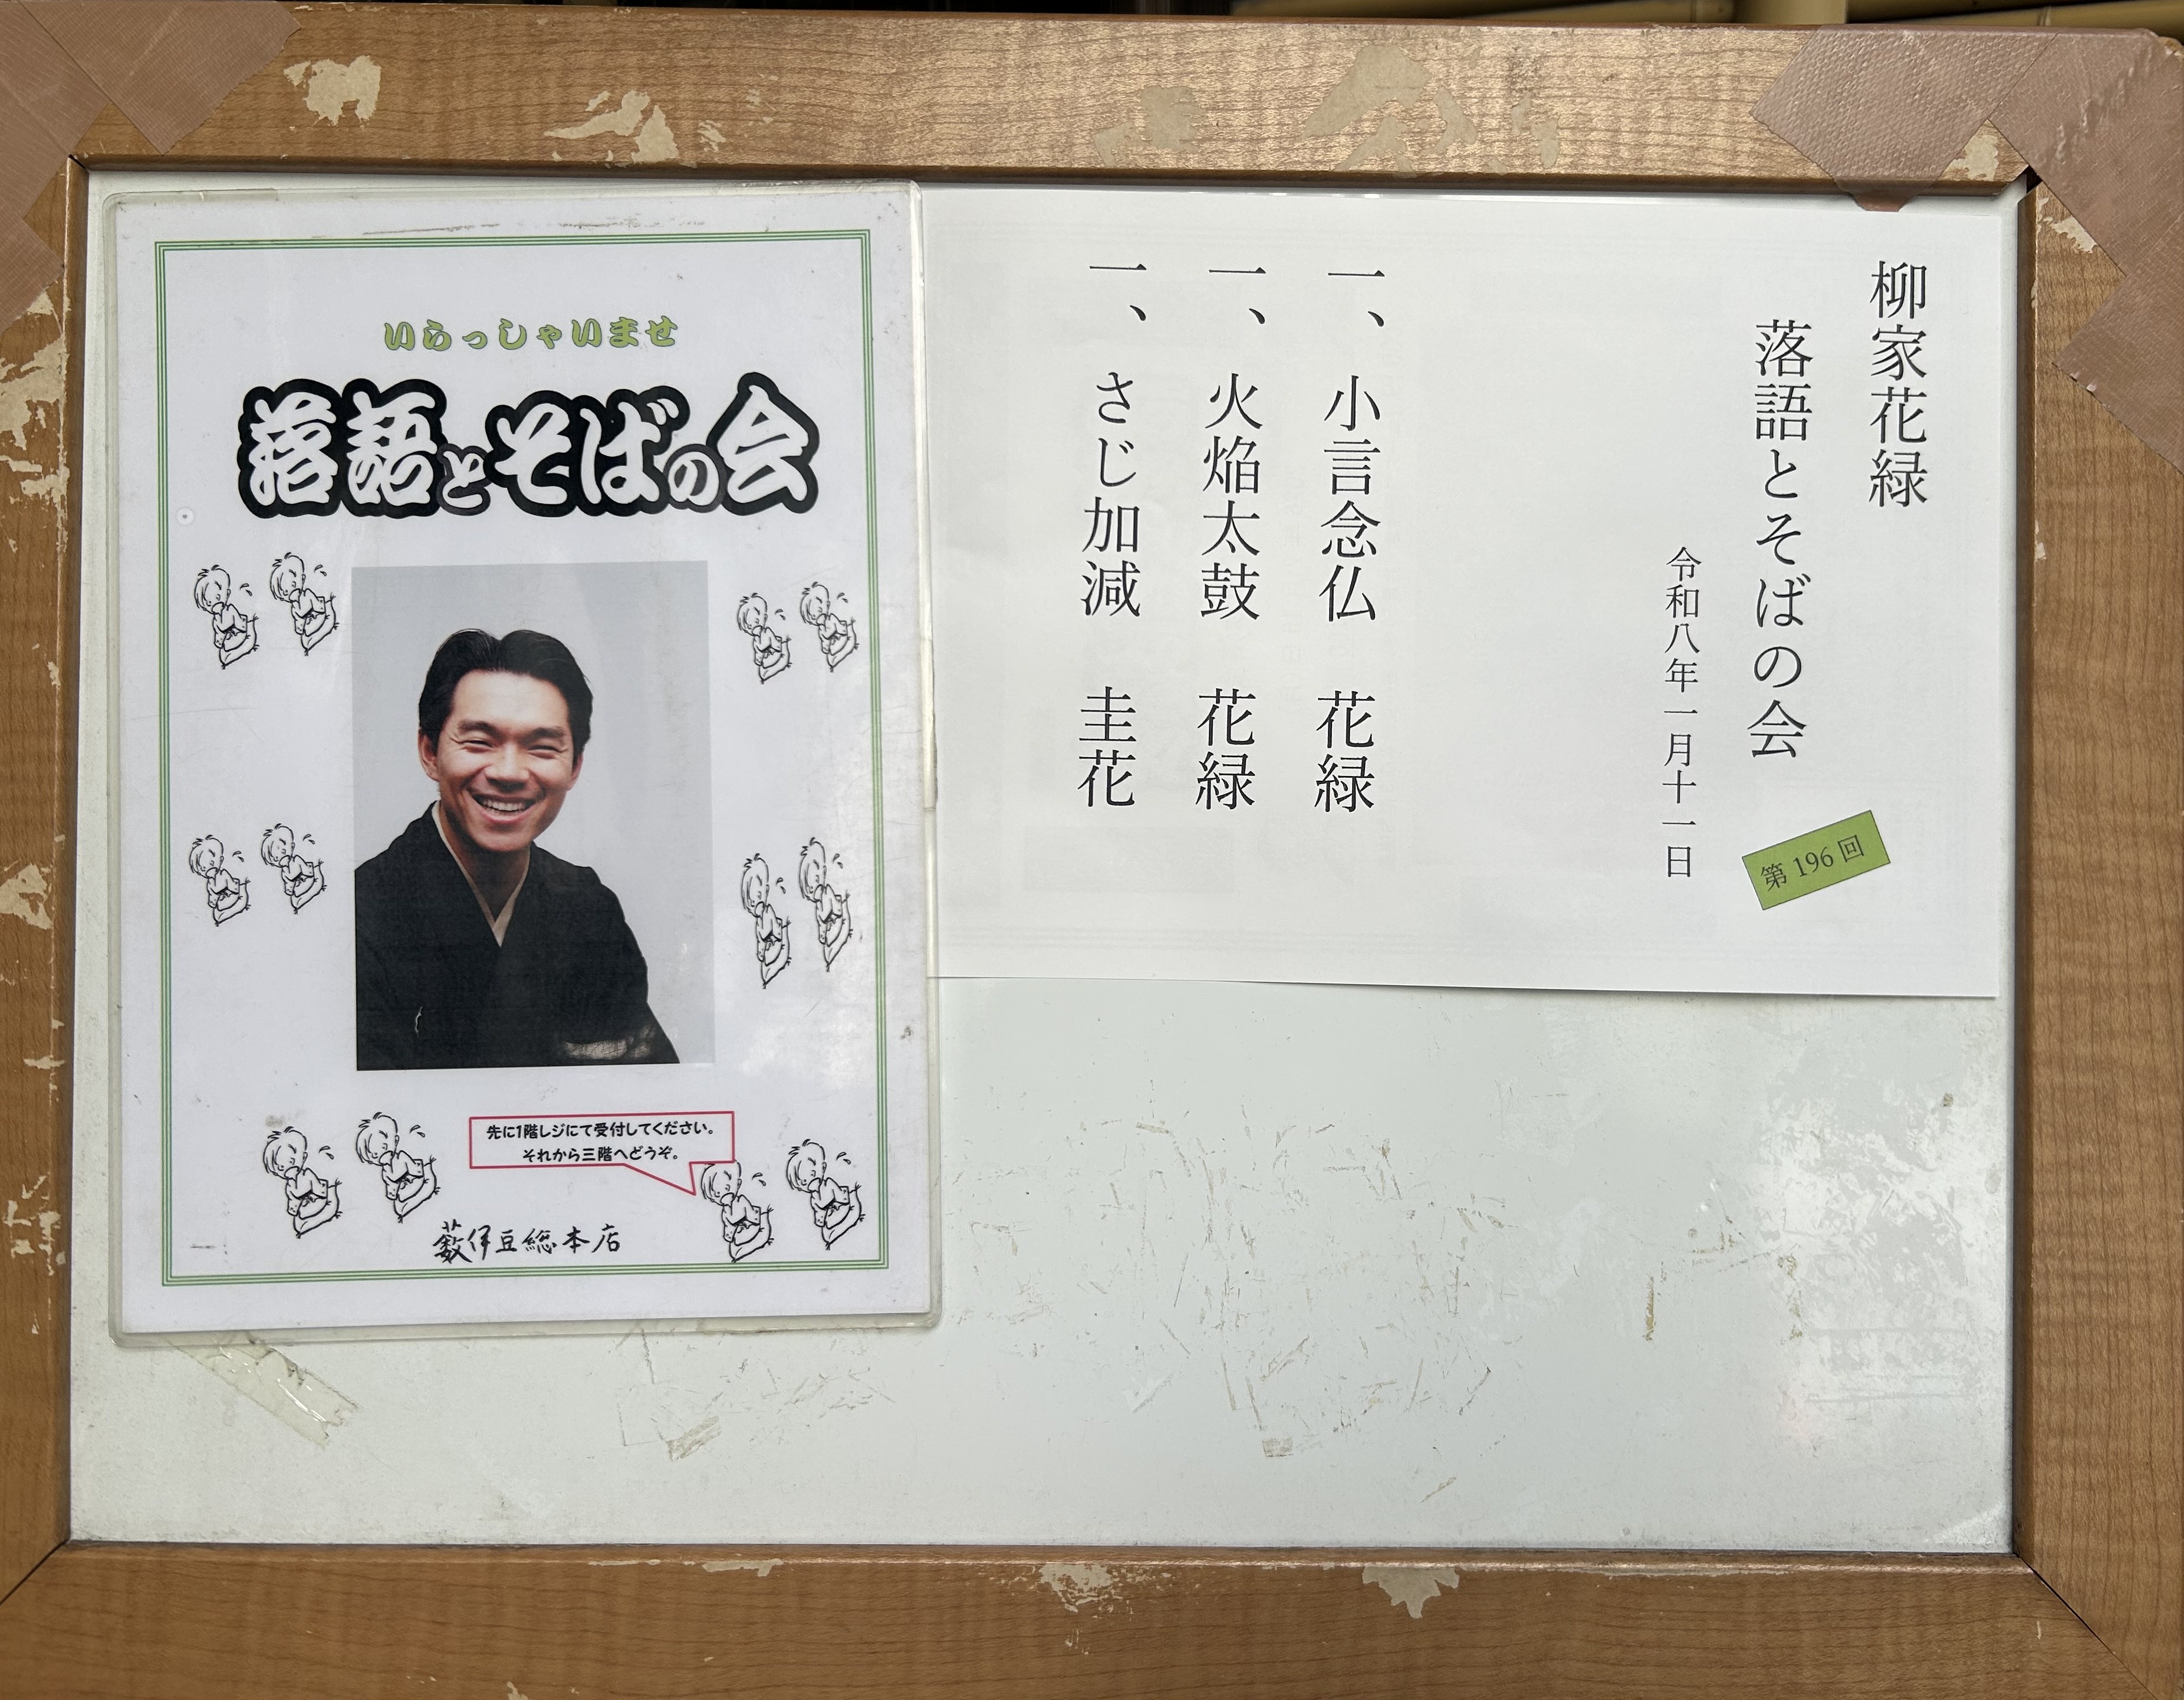 いらっしゃいませ
落語とそばの会
先に1階レジにて受付してください。
それから三階へどうぞ。
藪伊豆総本店
柳家花緑
落語とそばの会
第196回
令和八年一月十一日
一、小言念仏　花緑
一、火焔太鼓　花緑
一、さじ加減　圭花